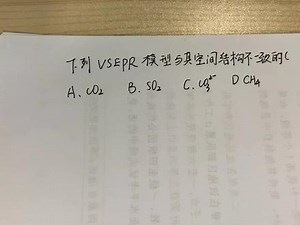 下列VSEPR模型与其空间结构不一致的(
A. CO₂ B. SO₂ C. CO₃²⁻ D CH₄